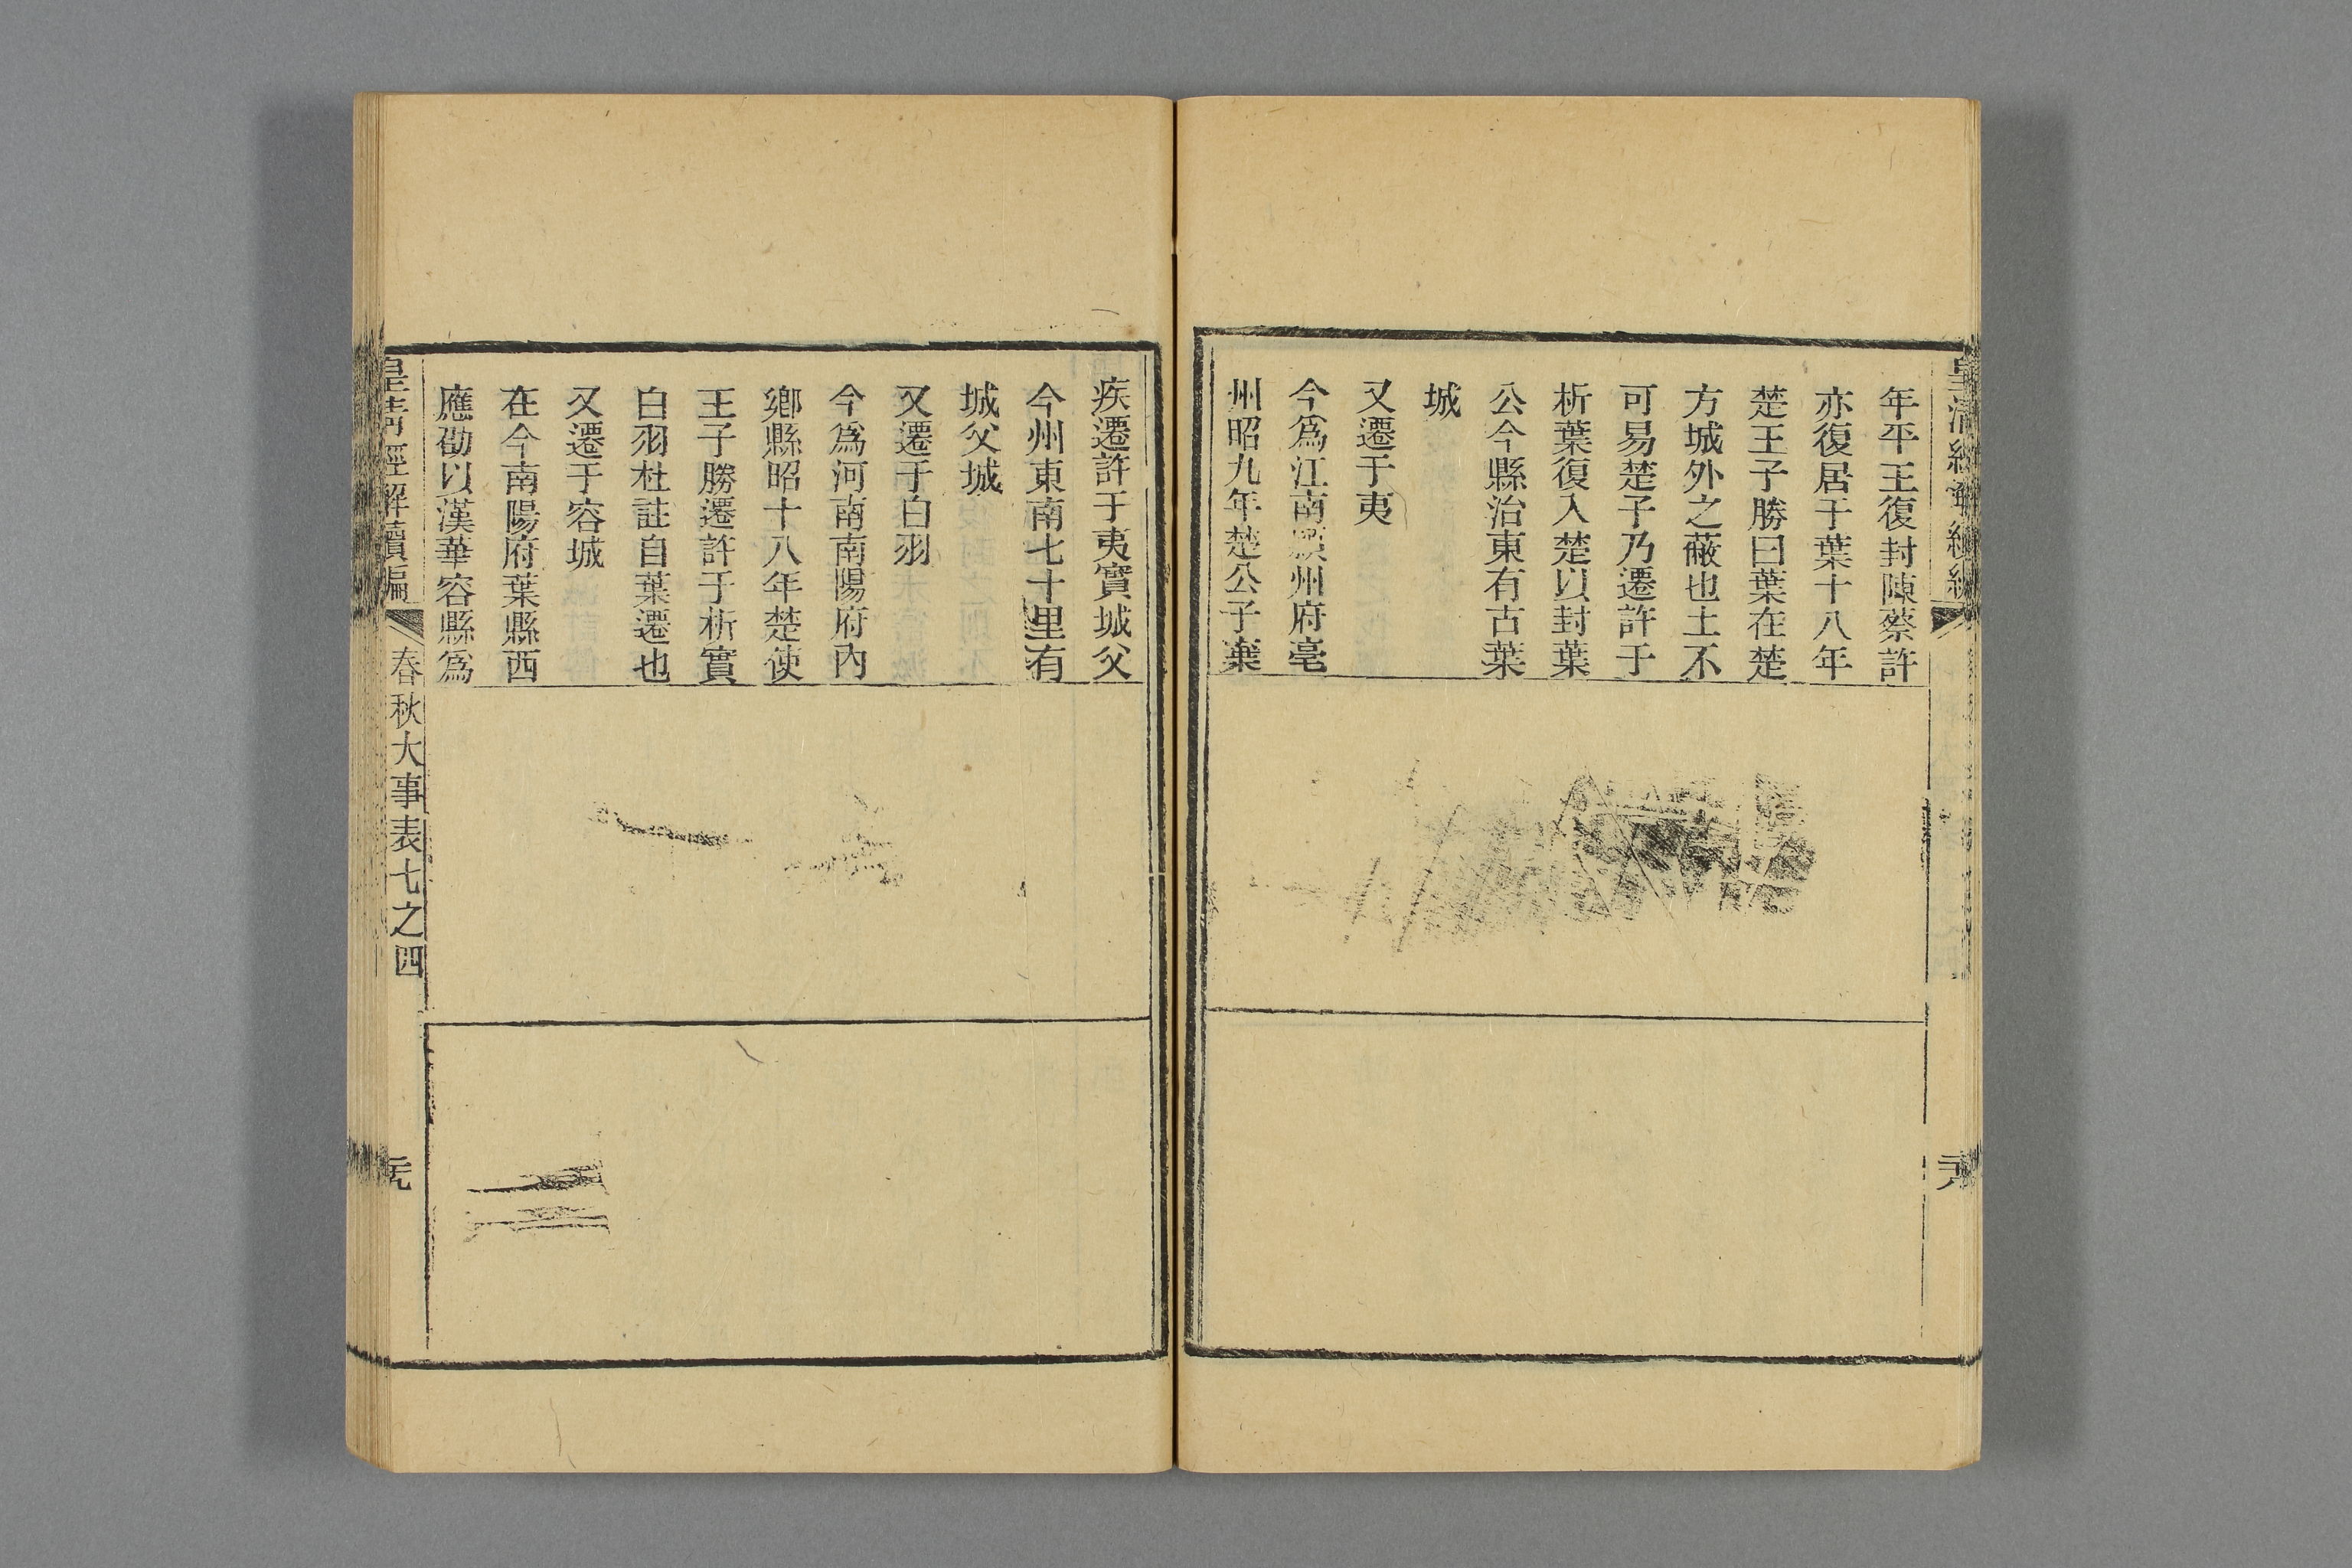 年平王復封陳蔡許
亦復居于葉十八年
楚王子勝曰葉在楚
方城外之蔽也土不
可易楚子乃遷許于
析葉復入楚以封葉
公今縣治東有古葉
城
又遷于夷
今爲江南潁州府亳
州昭九年楚公子棄
疾遷許于夷實城父
今州東南七十里有
城父城
又遷于白羽
今爲河南南陽府內
鄉縣昭十八年楚使
王子勝遷許于析實
白羽杜註自葉遷也
又遷于容城
在今南陽府葉縣西
應劭以漢華容縣爲
皇清經解續編
春秋大事表七之四